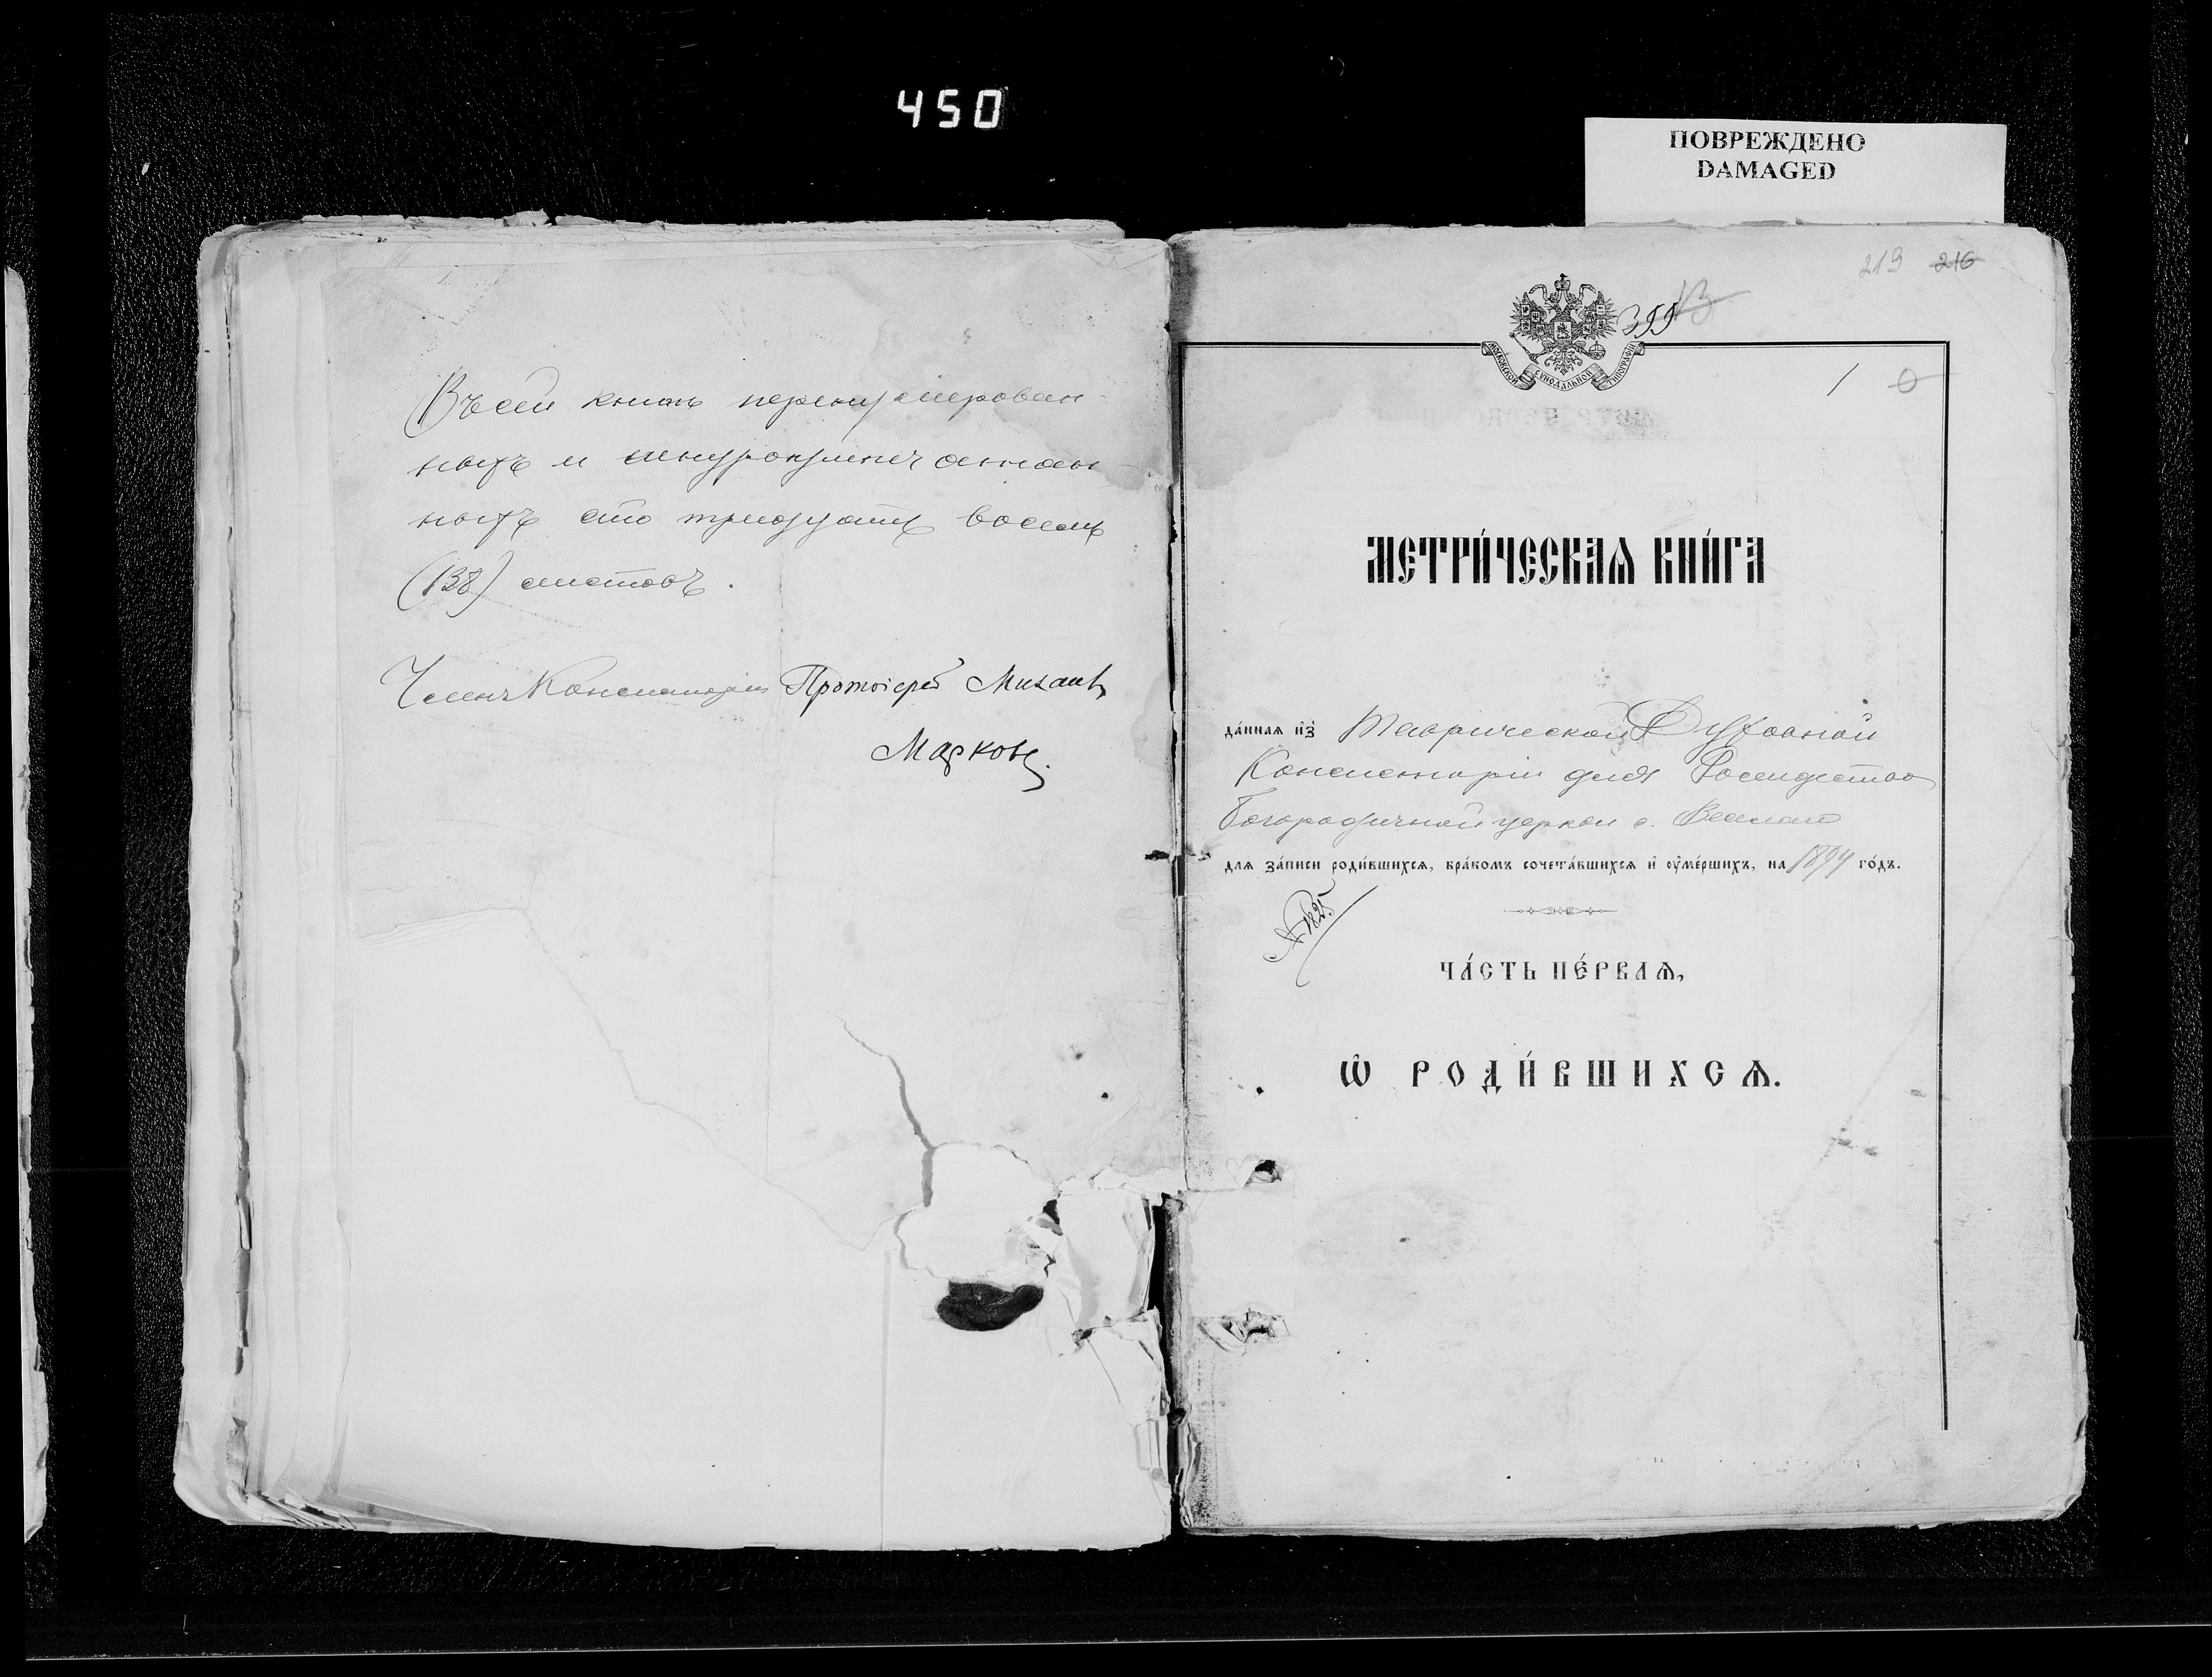 450
ПОВРЕЖДЕНО
DAMAGED
Въ сей книгѣ перенумерован-
ныхъ и шнуропрепечатан-
ныхъ сто тридцать восемь
(138) листовъ.
Членъ Консисторіи Протоіерей Михаилъ
Марковъ.
219 216
355 13
МОСКОВСКОЙ СѴНОДАЛЬНОЙ ТИПОГРАФІИ
1 0
МЕТРИ́ЧЕСКАѦ КНИ́ГА
да́ннаѧ и҆з̾ Таврической Духовной
Консисторіи для Рождество
Богородичной церкви с.
длѧ за́писи роди́вшихсѧ, бра́комъ сочета́вшихсѧ и҆ ᲂу҆ме́ршихъ, на 1894 го́дъ.
№ 1825
ЧА́СТЬ ПЕ́РВАѦ,
Ѡ҆ РОДИ́ВШИХСѦ.